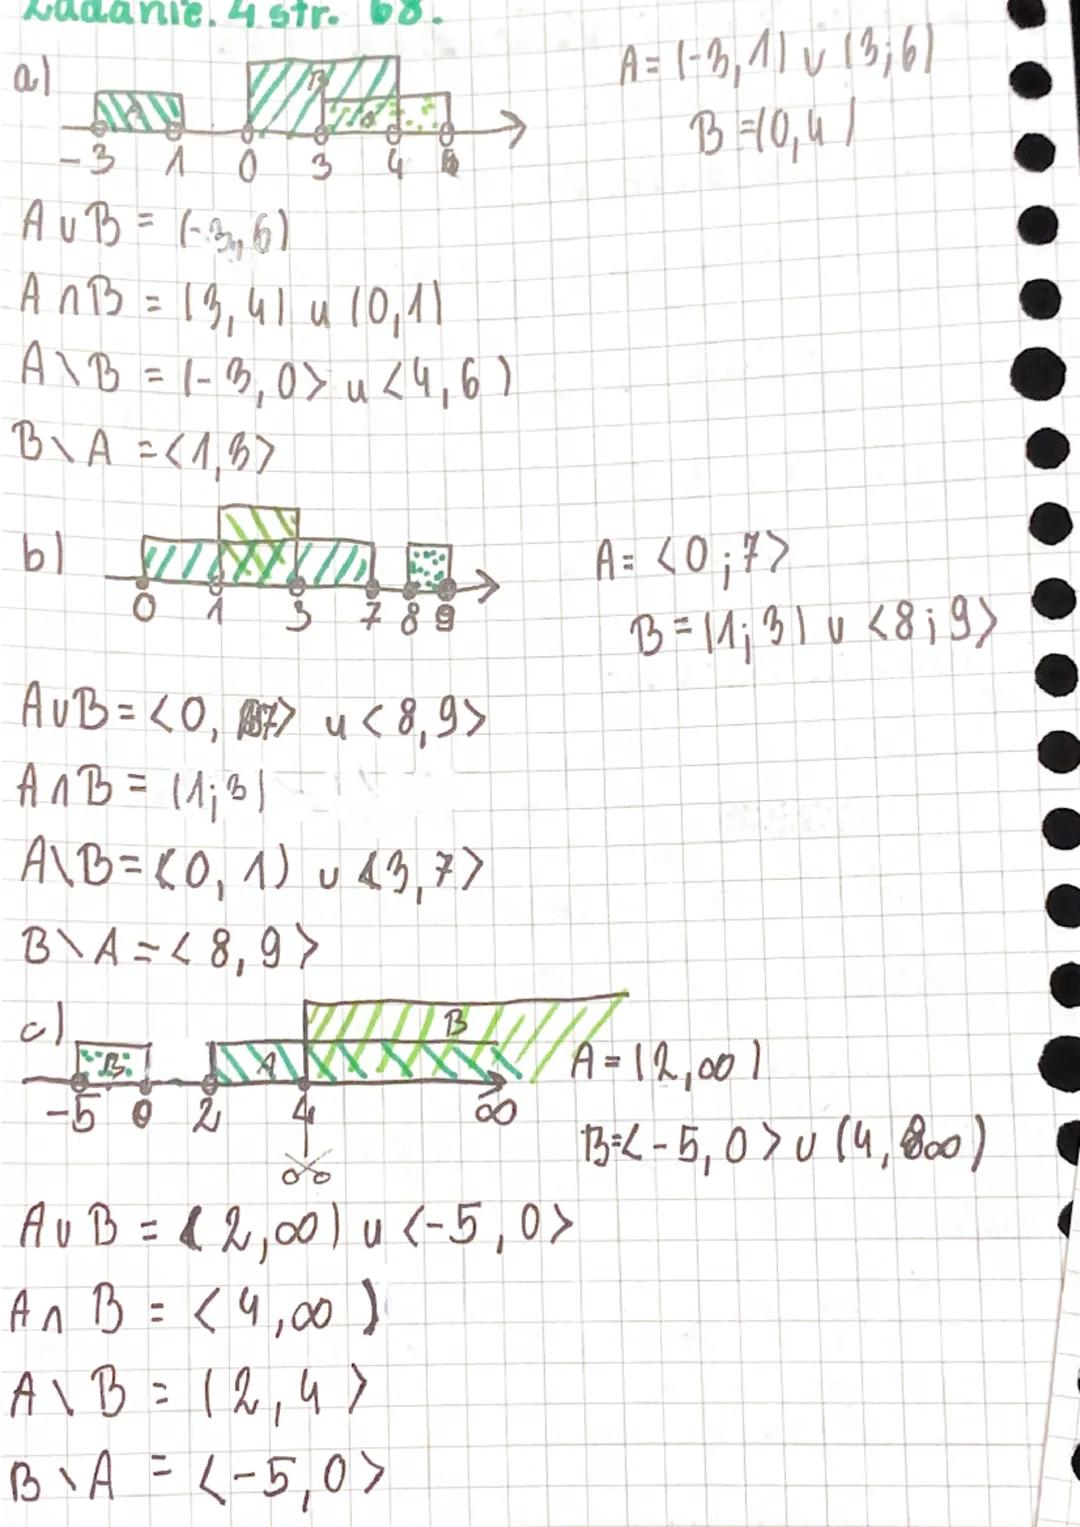 Zadanie. 4 str. 68.
a)
A = (-3,1) ∪ (3;6)
B = (0,4)
B
A
-3 1 0 3 4
A ∪ B = (-3,6)
A ∩ B = (3,4) ∪ (0,1)
A \ B = (-3,0> ∪ <4,6)
B \ A = <1,3>
b)
A = <0;7>
B = (1;3) ∪ <8;9>
0 1 3 7 8 9
A∪B = <0, 7> ∪ <8,9>
A∩B = (1;3)
A\B = <0, 1) ∪ <3,7>
B \ A = <8,9>
c)
B
B A
A = (2,∞)
-5 0 2 4 ∞
B = <-5,0> ∪ (4, ∞)
A ∪ B = (2,∞) ∪ <-5,0>
A ∩ B = <4,∞)
A \ B = (2,4>
B \ A = <-5,0>